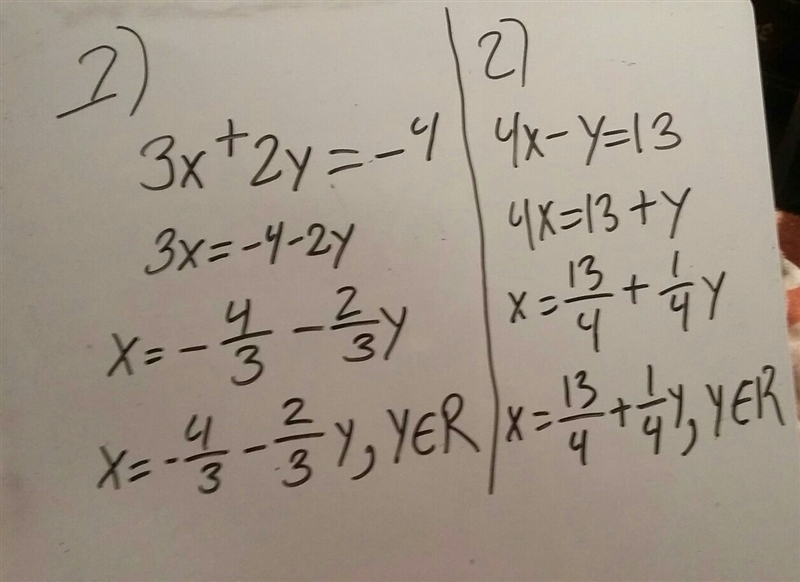 1)
3x+2y=-4
3x=-4-2y
x=-4/3-2/3y
x=-4/3-2/3y, y∈R
2)
4x-y=13
4x=13+y
x=13/4+1/4y
x=13/4+1/4y, y∈R